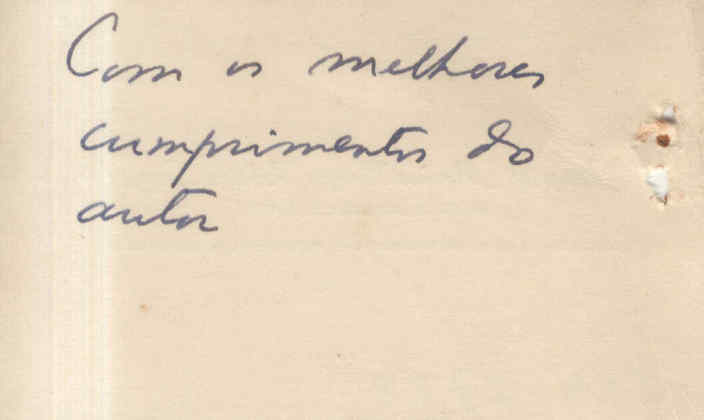 Com os melhores
cumprimentos do
autor